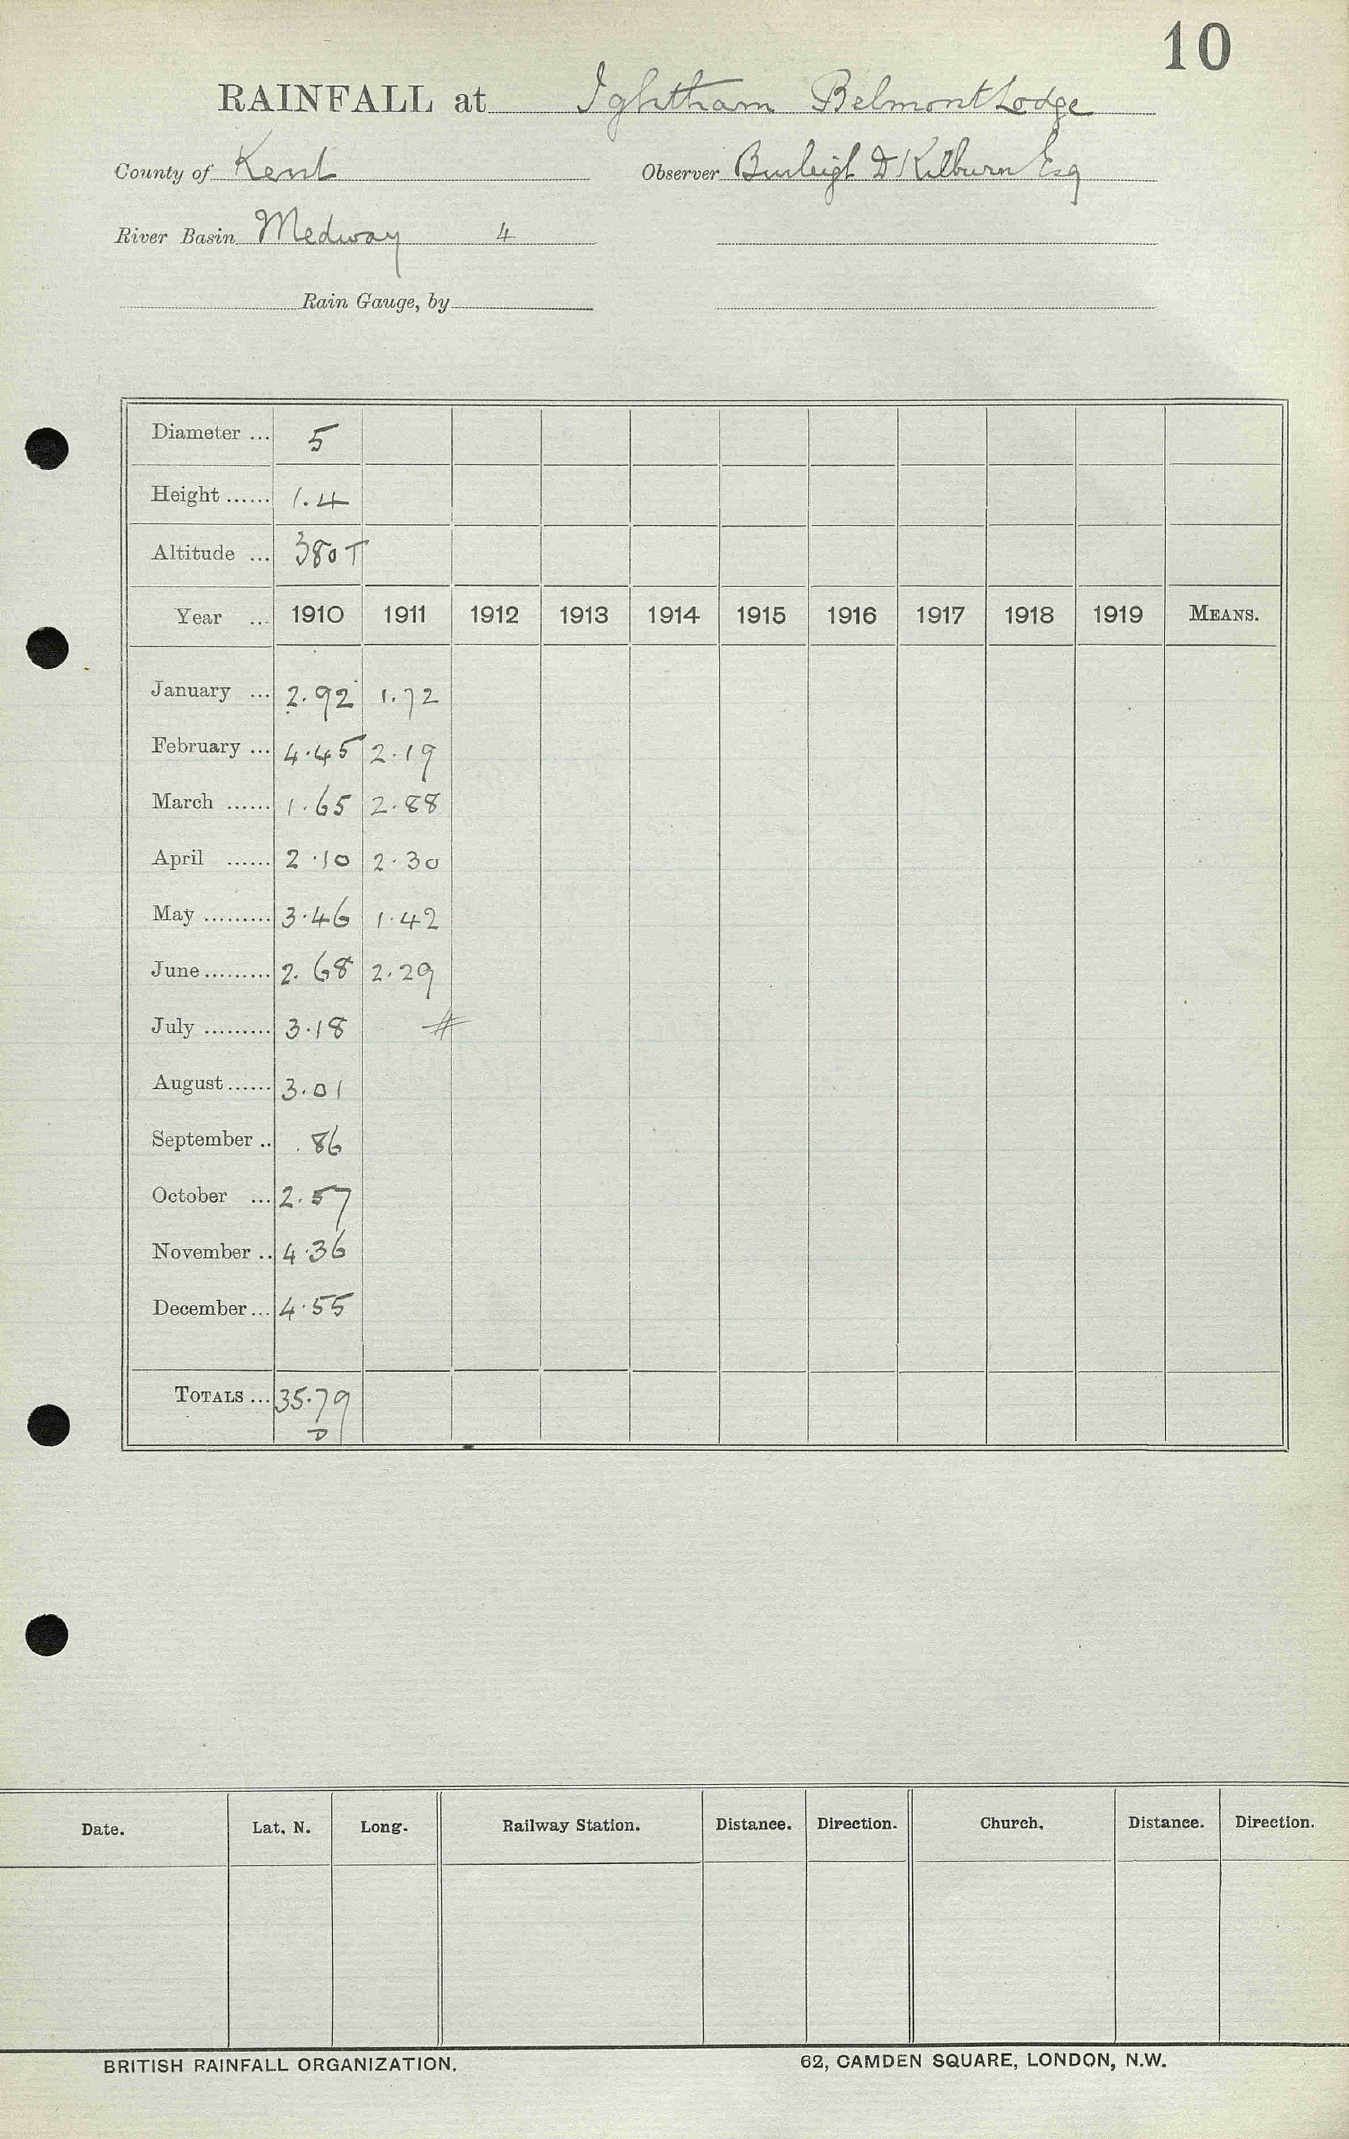 10
RAINFALL at Ightham Belmont Lodge
County of Kent Observer Burleigh D Kilburn Esq
River Basin Medway 4
Rain Gauge, by
Diameter ... 5
Height ...... 1.4
Altitude ... 380 T
Year ... 1910 1911 1912 1913 1914 1915 1916 1917 1918 1919 MEANS.
January ... 2.92 1.72
February ... 4.45 2.19
March ...... 1.65 2.88
April ...... 2.10 2.30
May ......... 3.46 1.42
June ......... 2.68 2.29
July ......... 3.18 #
August ...... 3.01
September .. .86
October ... 2.57
November .. 4.36
December ... 4.55
TOTALS ... 35.79
D
Date. Lat. N. Long. Railway Station. Distance. Direction. Church. Distance. Direction.
BRITISH RAINFALL ORGANIZATION. 62, CAMDEN SQUARE, LONDON, N.W.